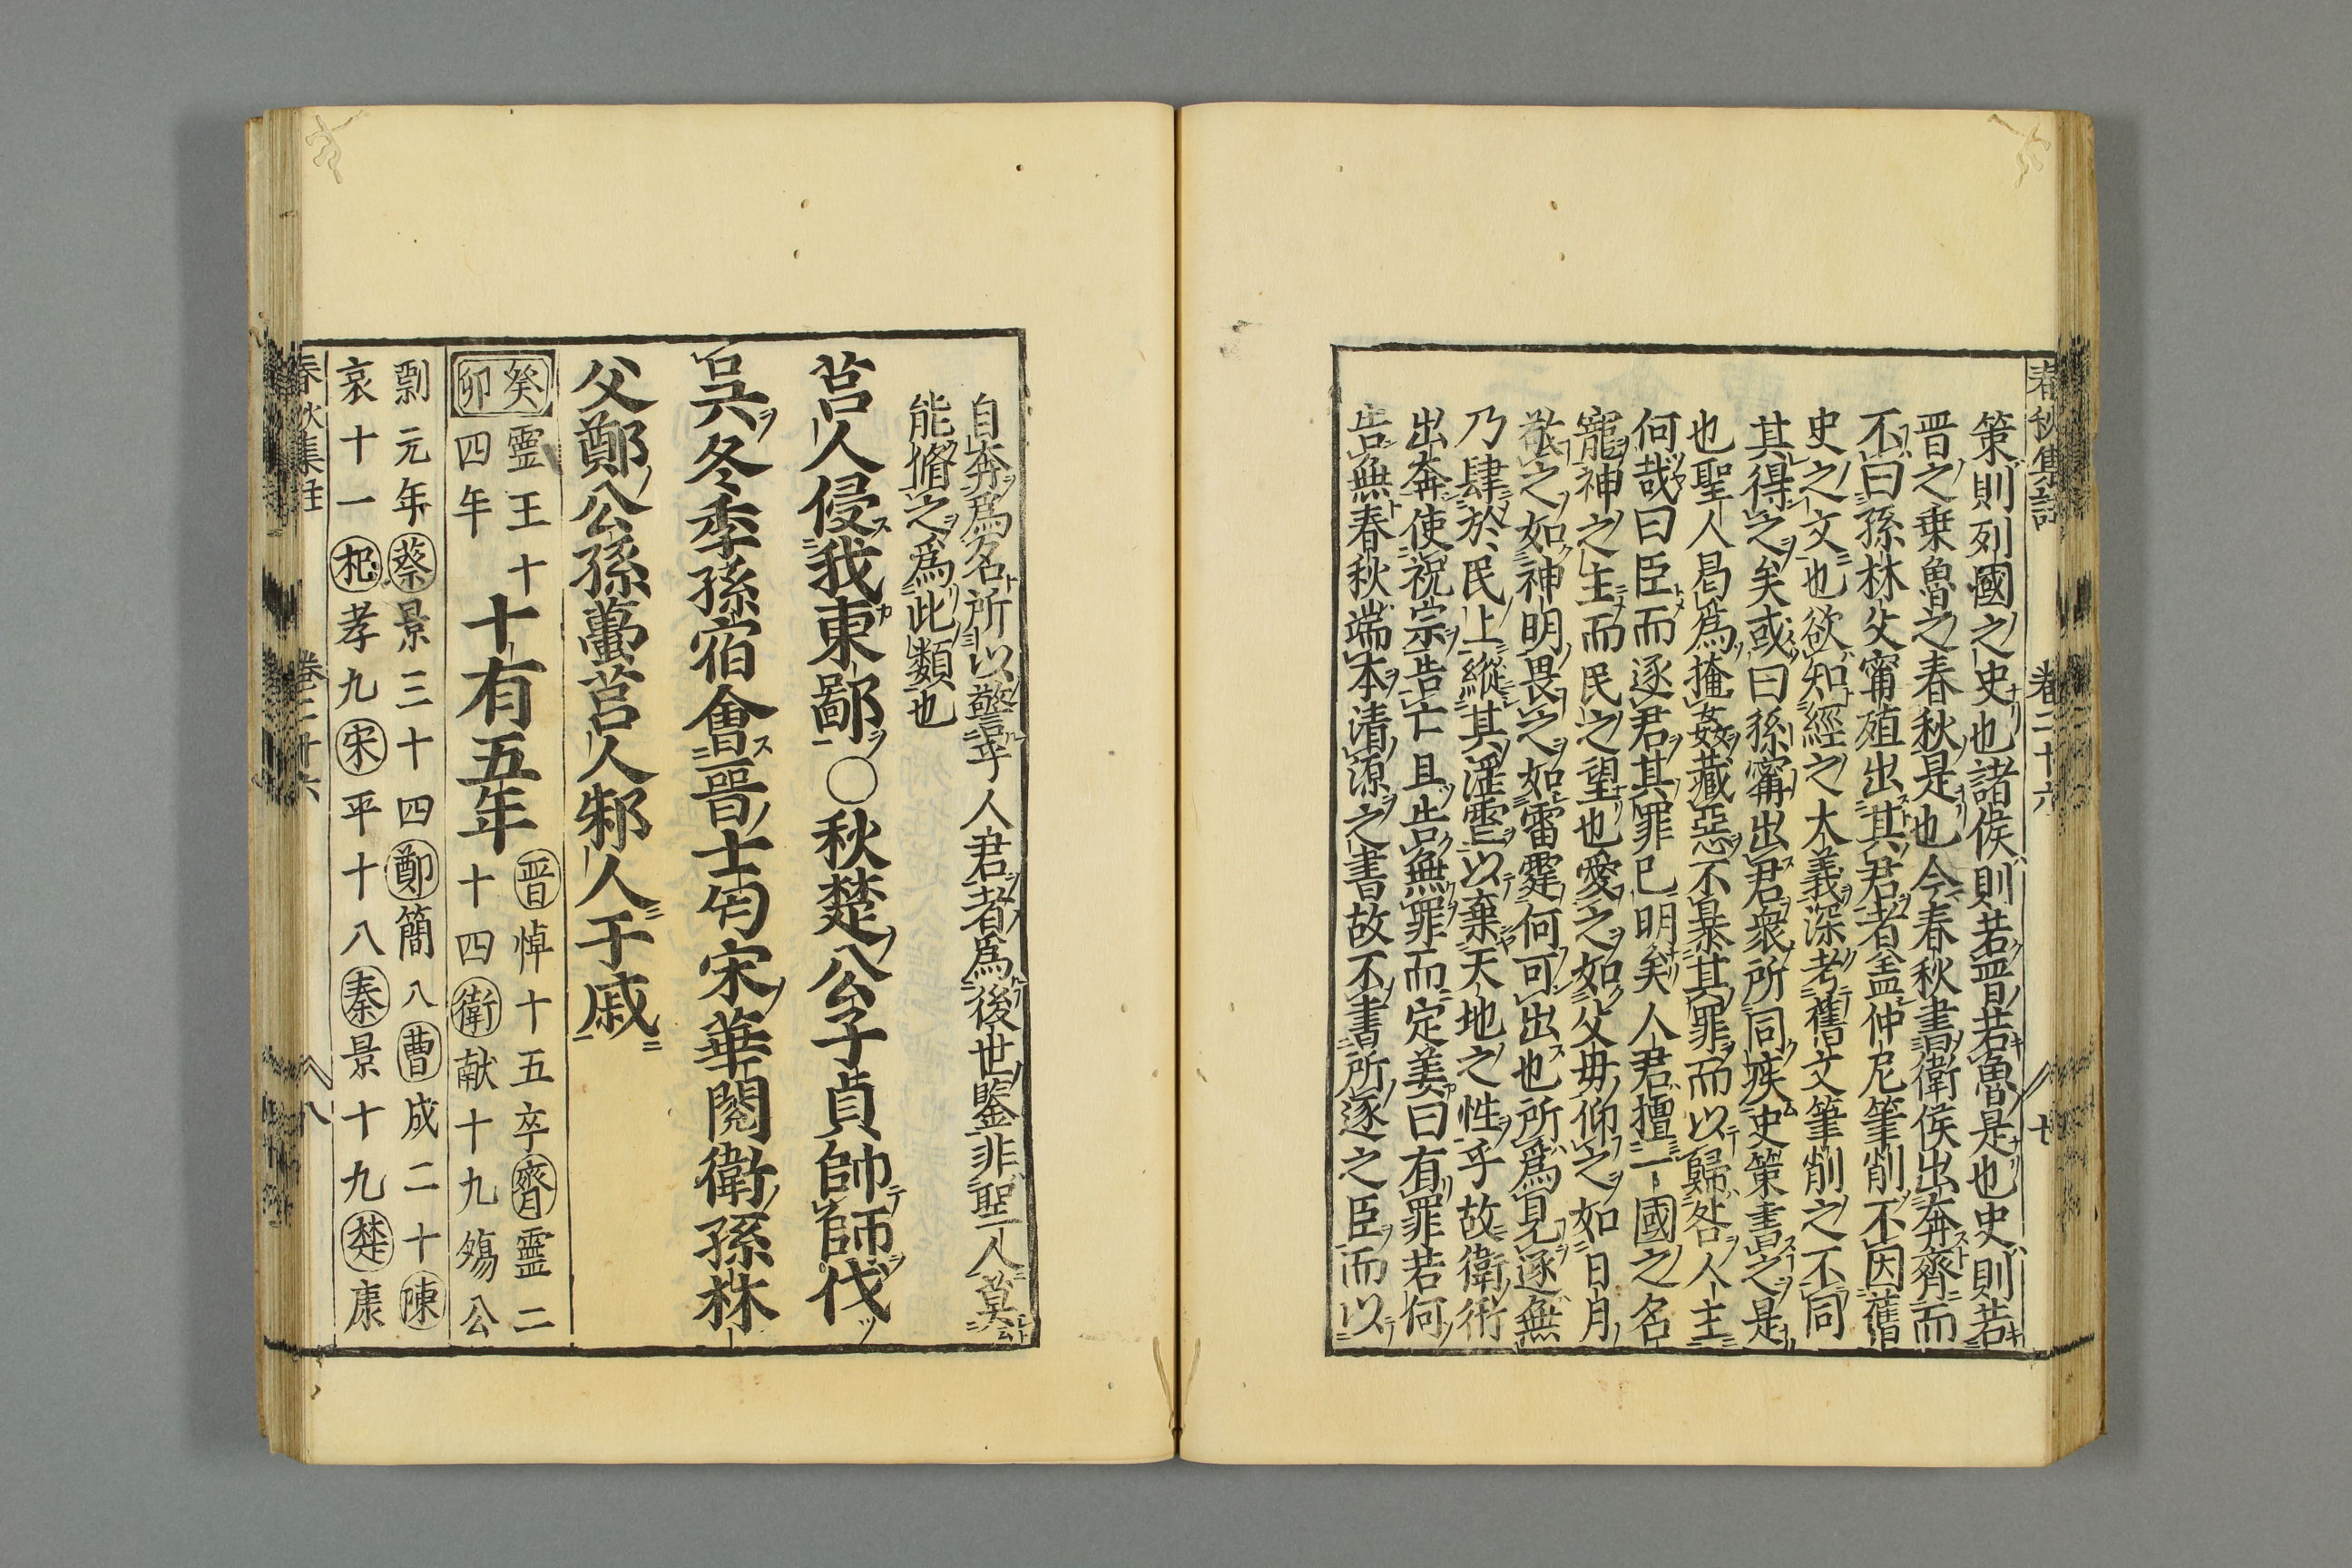 春秋集註 卷二十六 十
策則列國之史也諸侯則若晋若魯是也史則若
晋之乗魯之春秋是也今春秋書衛侯出奔齊而
不曰孫林父甯殖出其君者盖仲尼筆削不因舊
史之文也欲知經之大義深考舊文筆削之不同
其得之矣或曰孫甯出君衆所同疾史策書之是
也聖人曷爲掩姦藏惡不暴其罪而以歸咎人主
何哉曰臣而逐君其罪已明矣人君擅一國之名
寵神之主而民之望也愛之如父毋仰之如日月
敬之如神明畏之如雷霆何可出也所爲見逐無
乃肆於民上縱其淫虐以棄天地之性乎故衛衎
出奔使祝宗告亡且告無罪而定姜曰有罪若何
告無春秋端本清源之書故不書所逐之臣而以
自奔爲名所以警乎人君者爲後世鑒非聖人莫
能脩之爲此類也
莒人侵我東鄙〇秋楚公子貞帥師伐
吳冬季孫宿會晋士匄宋華閱衛孫林
父鄭公孫蠆莒人邾人于戚
癸卯 靈王十四年 十有五年 晋悼十五卒齊靈二十四衛献十九殤公
剽元年蔡景三十四鄭簡八曹成二十陳
哀十一杞孝九宋平十八秦景十九楚康
春秋集註 卷二十六 八